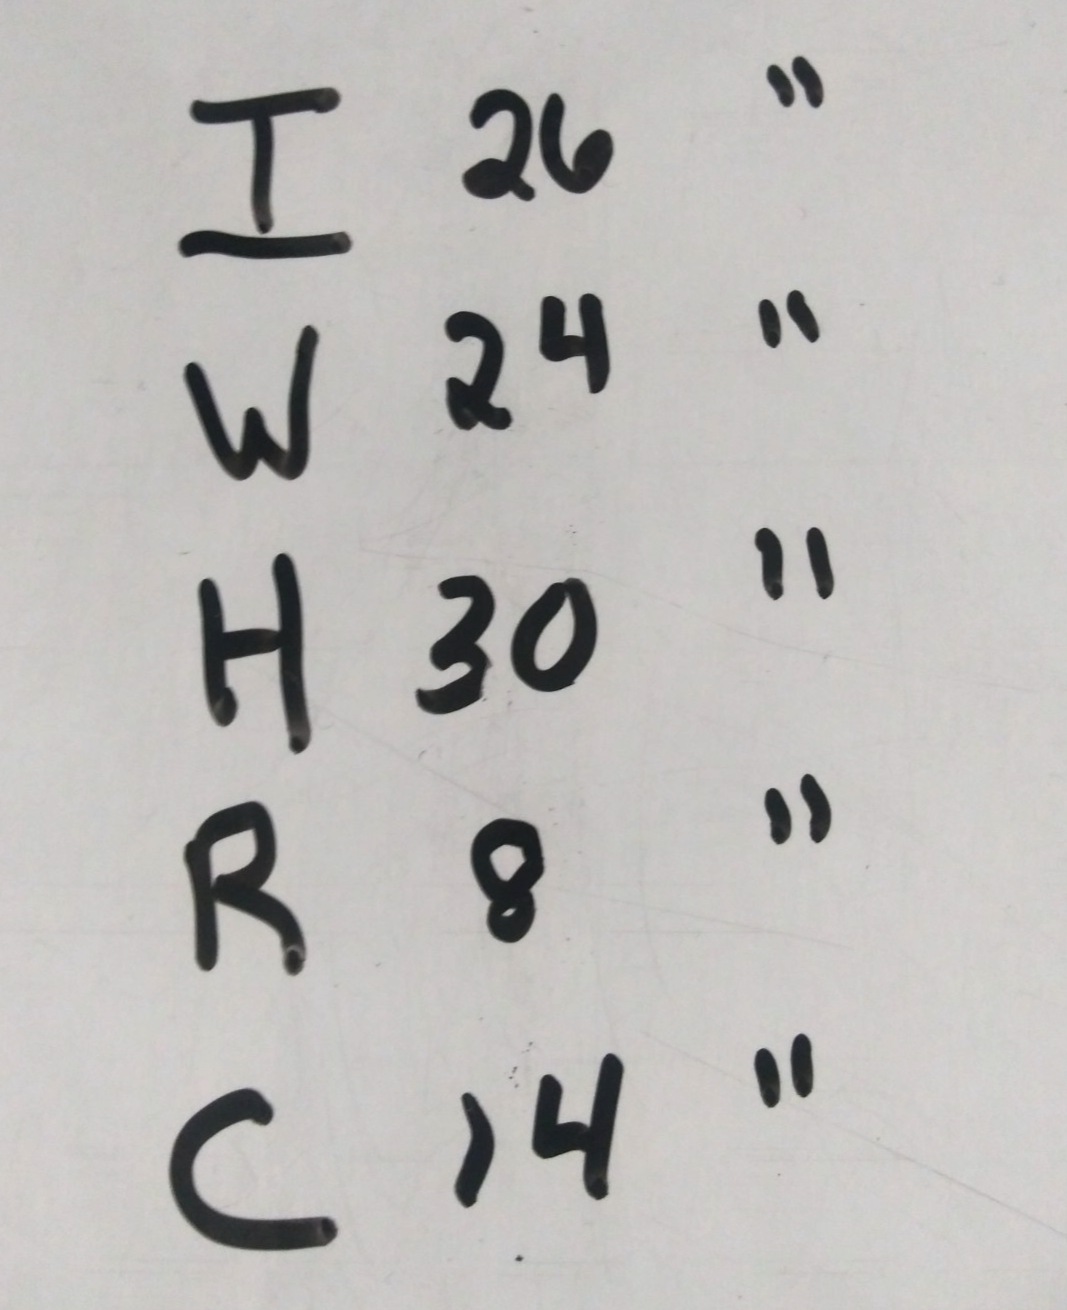 I 26 "
W 24 "
H 30 "
R 8 "
C 14 "